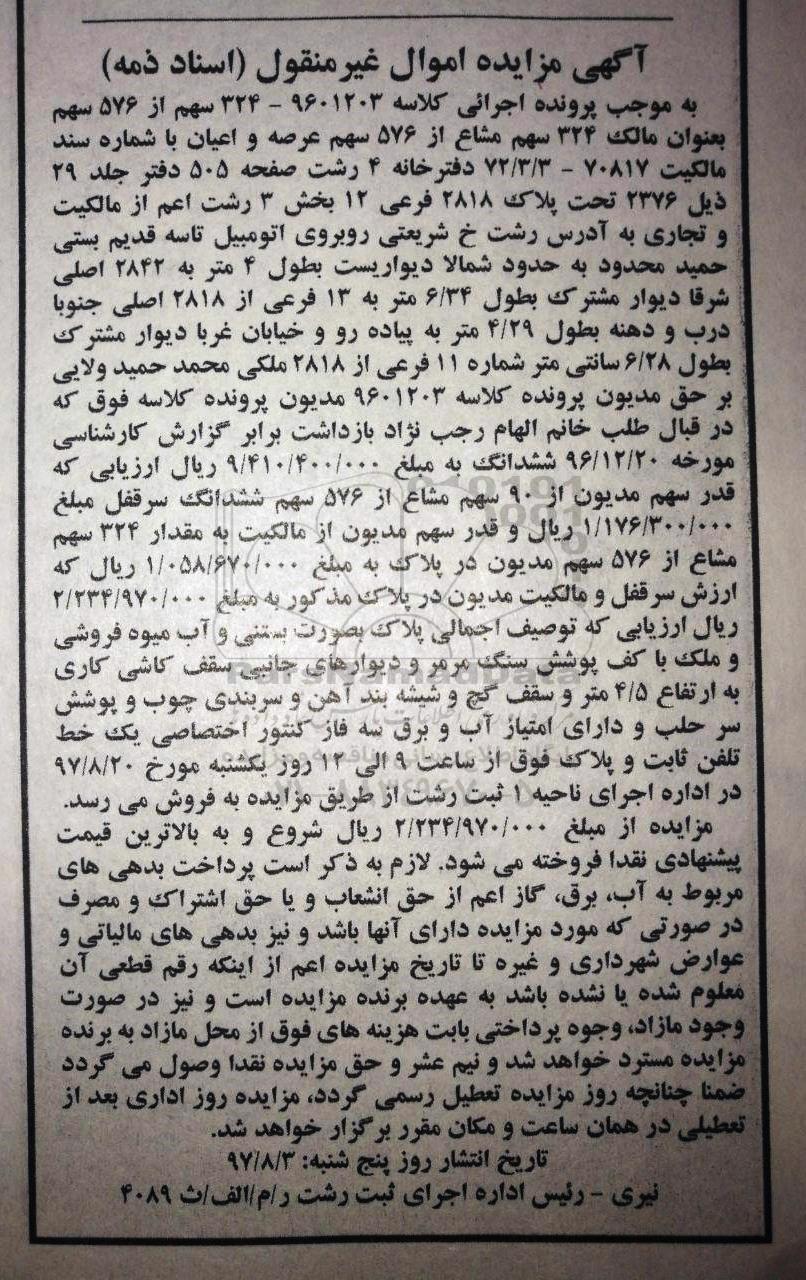 آگهی مزایده اموال غیرمنقول (اسناد ذمه)
به موجب پرونده اجرائی کلاسه ۹۶۰۱۲۰۳ - ۳۲۴ سهم از ۵۷۶ سهم
بعنوان مالک ۳۲۴ سهم مشاع از ۵۷۶ سهم عرصه و اعیان با شماره سند
مالکیت ۷۰۸۱۷ - ۷۲/۳/۳ دفترخانه ۴ رشت صفحه ۵۰۵ دفتر جلد ۲۹
ذیل ۲۳۷۶ تحت پلاک ۲۸۱۸ فرعی ۱۲ بخش ۳ رشت اعم از مالکیت
و تجاری به آدرس رشت خ شریعتی روبروی اتومبیل تاسه قدیم بستی
حمید محدود به حدود شمالا دیواریست بطول ۴ متر به ۲۸۴۲ اصلی
شرقا دیوار مشترک بطول ۶/۳۴ متر به ۱۳ فرعی از ۲۸۱۸ اصلی جنوبا
درب و دهنه بطول ۴/۲۹ متر به پیاده رو و خیابان غربا دیوار مشترک
بطول ۶/۲۸ سانتی متر شماره ۱۱ فرعی از ۲۸۱۸ ملکی محمد حمید ولایی
بر حق مدیون پرونده کلاسه ۹۶۰۱۲۰۳ مدیون پرونده کلاسه فوق که
در قبال طلب خانم الهام رجب نژاد بازداشت برابر گزارش کارشناسی
مورخه ۹۶/۱۲/۲۰ ششدانگ به مبلغ ۹/۴۱۰/۴۰۰/۰۰۰ ریال ارزیابی که
قدر سهم مدیون از ۹۰ سهم مشاع از ۵۷۶ سهم ششدانگ سرقفل مبلغ
۱/۱۷۶/۳۰۰/۰۰۰ ریال و قدر سهم مدیون از مالکیت به مقدار ۳۲۴ سهم
مشاع از ۵۷۶ سهم مدیون در پلاک به مبلغ ۱/۰۵۸/۶۷۰/۰۰۰ ریال که
ارزش سرقفل و مالکیت مدیون در پلاک مذکور به مبلغ ۲/۲۳۴/۹۷۰/۰۰۰
ریال ارزیابی که توصیف اجمالی پلاک بصورت بستنی و آب میوه فروشی
و ملک با کف پوشش سنگ مرمر و دیوارهای جانبی سقف کاشی کاری
به ارتفاع ۴/۵ متر و سقف گچ و شیشه بند آهن و سربندی چوب و پوشش
سر حلب و دارای امتیاز آب و برق سه فاز کنتور اختصاصی یک خط
تلفن ثابت و پلاک فوق از ساعت ۹ الی ۱۲ روز یکشنبه مورخ ۹۷/۸/۲۰
در اداره اجرای ناحیه ۱ ثبت رشت از طریق مزایده به فروش می رسد.
مزایده از مبلغ ۲/۲۳۴/۹۷۰/۰۰۰ ریال شروع و به بالاترین قیمت
پیشنهادی نقدا فروخته می شود. لازم به ذکر است پرداخت بدهی های
مربوط به آب، برق، گاز اعم از حق انشعاب و یا حق اشتراک و مصرف
در صورتی که مورد مزایده دارای آنها باشد و نیز بدهی های مالیاتی و
عوارض شهرداری و غیره تا تاریخ مزایده اعم از اینکه رقم قطعی آن
معلوم شده یا نشده باشد به عهده برنده مزایده است و نیز در صورت
وجود مازاد، وجوه پرداختی بابت هزینه های فوق از محل مازاد به برنده
مزایده مسترد خواهد شد و نیم عشر و حق مزایده نقدا وصول می گردد
ضمنا چنانچه روز مزایده تعطیل رسمی گردد، مزایده روز اداری بعد از
تعطیلی در همان ساعت و مکان مقرر برگزار خواهد شد.
تاریخ انتشار روز پنج شنبه: ۹۷/۸/۳
نیری - رئیس اداره اجرای ثبت رشت ر/م/الف/ث ۴۰۸۹